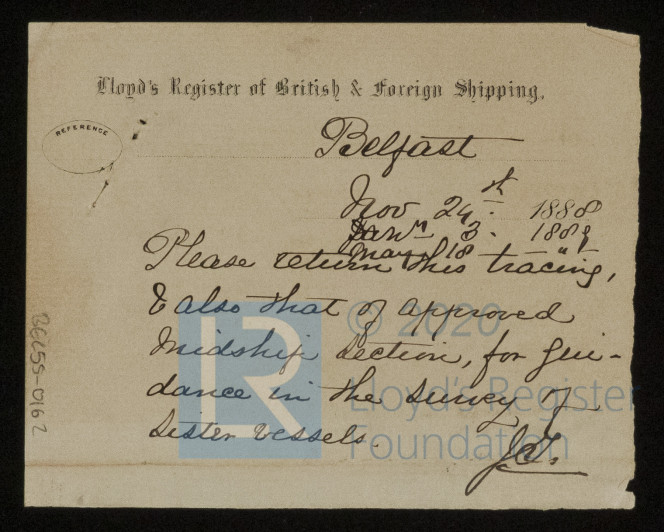 Lloyd's Register of British & Foreign Shipping.
REFERENCE
Belfast
Nov 24th 1888
3. 1889
May 18 " "
Please return this tracing,
& also that of approved
Midship Section, for gui-
dance in the survey of
sister vessels
© 2020
LR
Lloyd's Register
Foundation
BEL55-0162